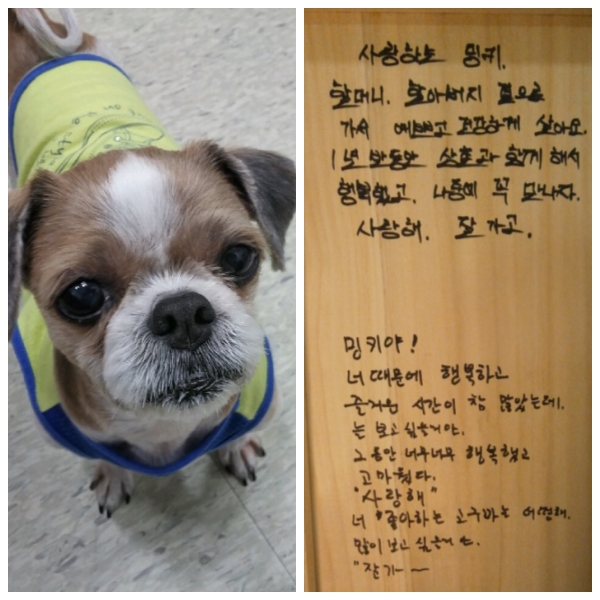 사랑하는 밍키.
할머니. 할아버지 곁으로
가서 예쁘고 건강하게 살아요.
1년 반동안 상호과 함께 해서
행복했고. 나중에 꼭 만나자.
사랑해. 잘 가고.
밍키야!
너 때문에 행복하고
즐거운 시간이 참 많았는데.
는 보고 싶을거야.
그 동안 너무너무 행복했고
고마웠다.
"사랑해"
너 좋아하는 고구마는 어떡해.
많이 보고 싶을거
"잘가~~